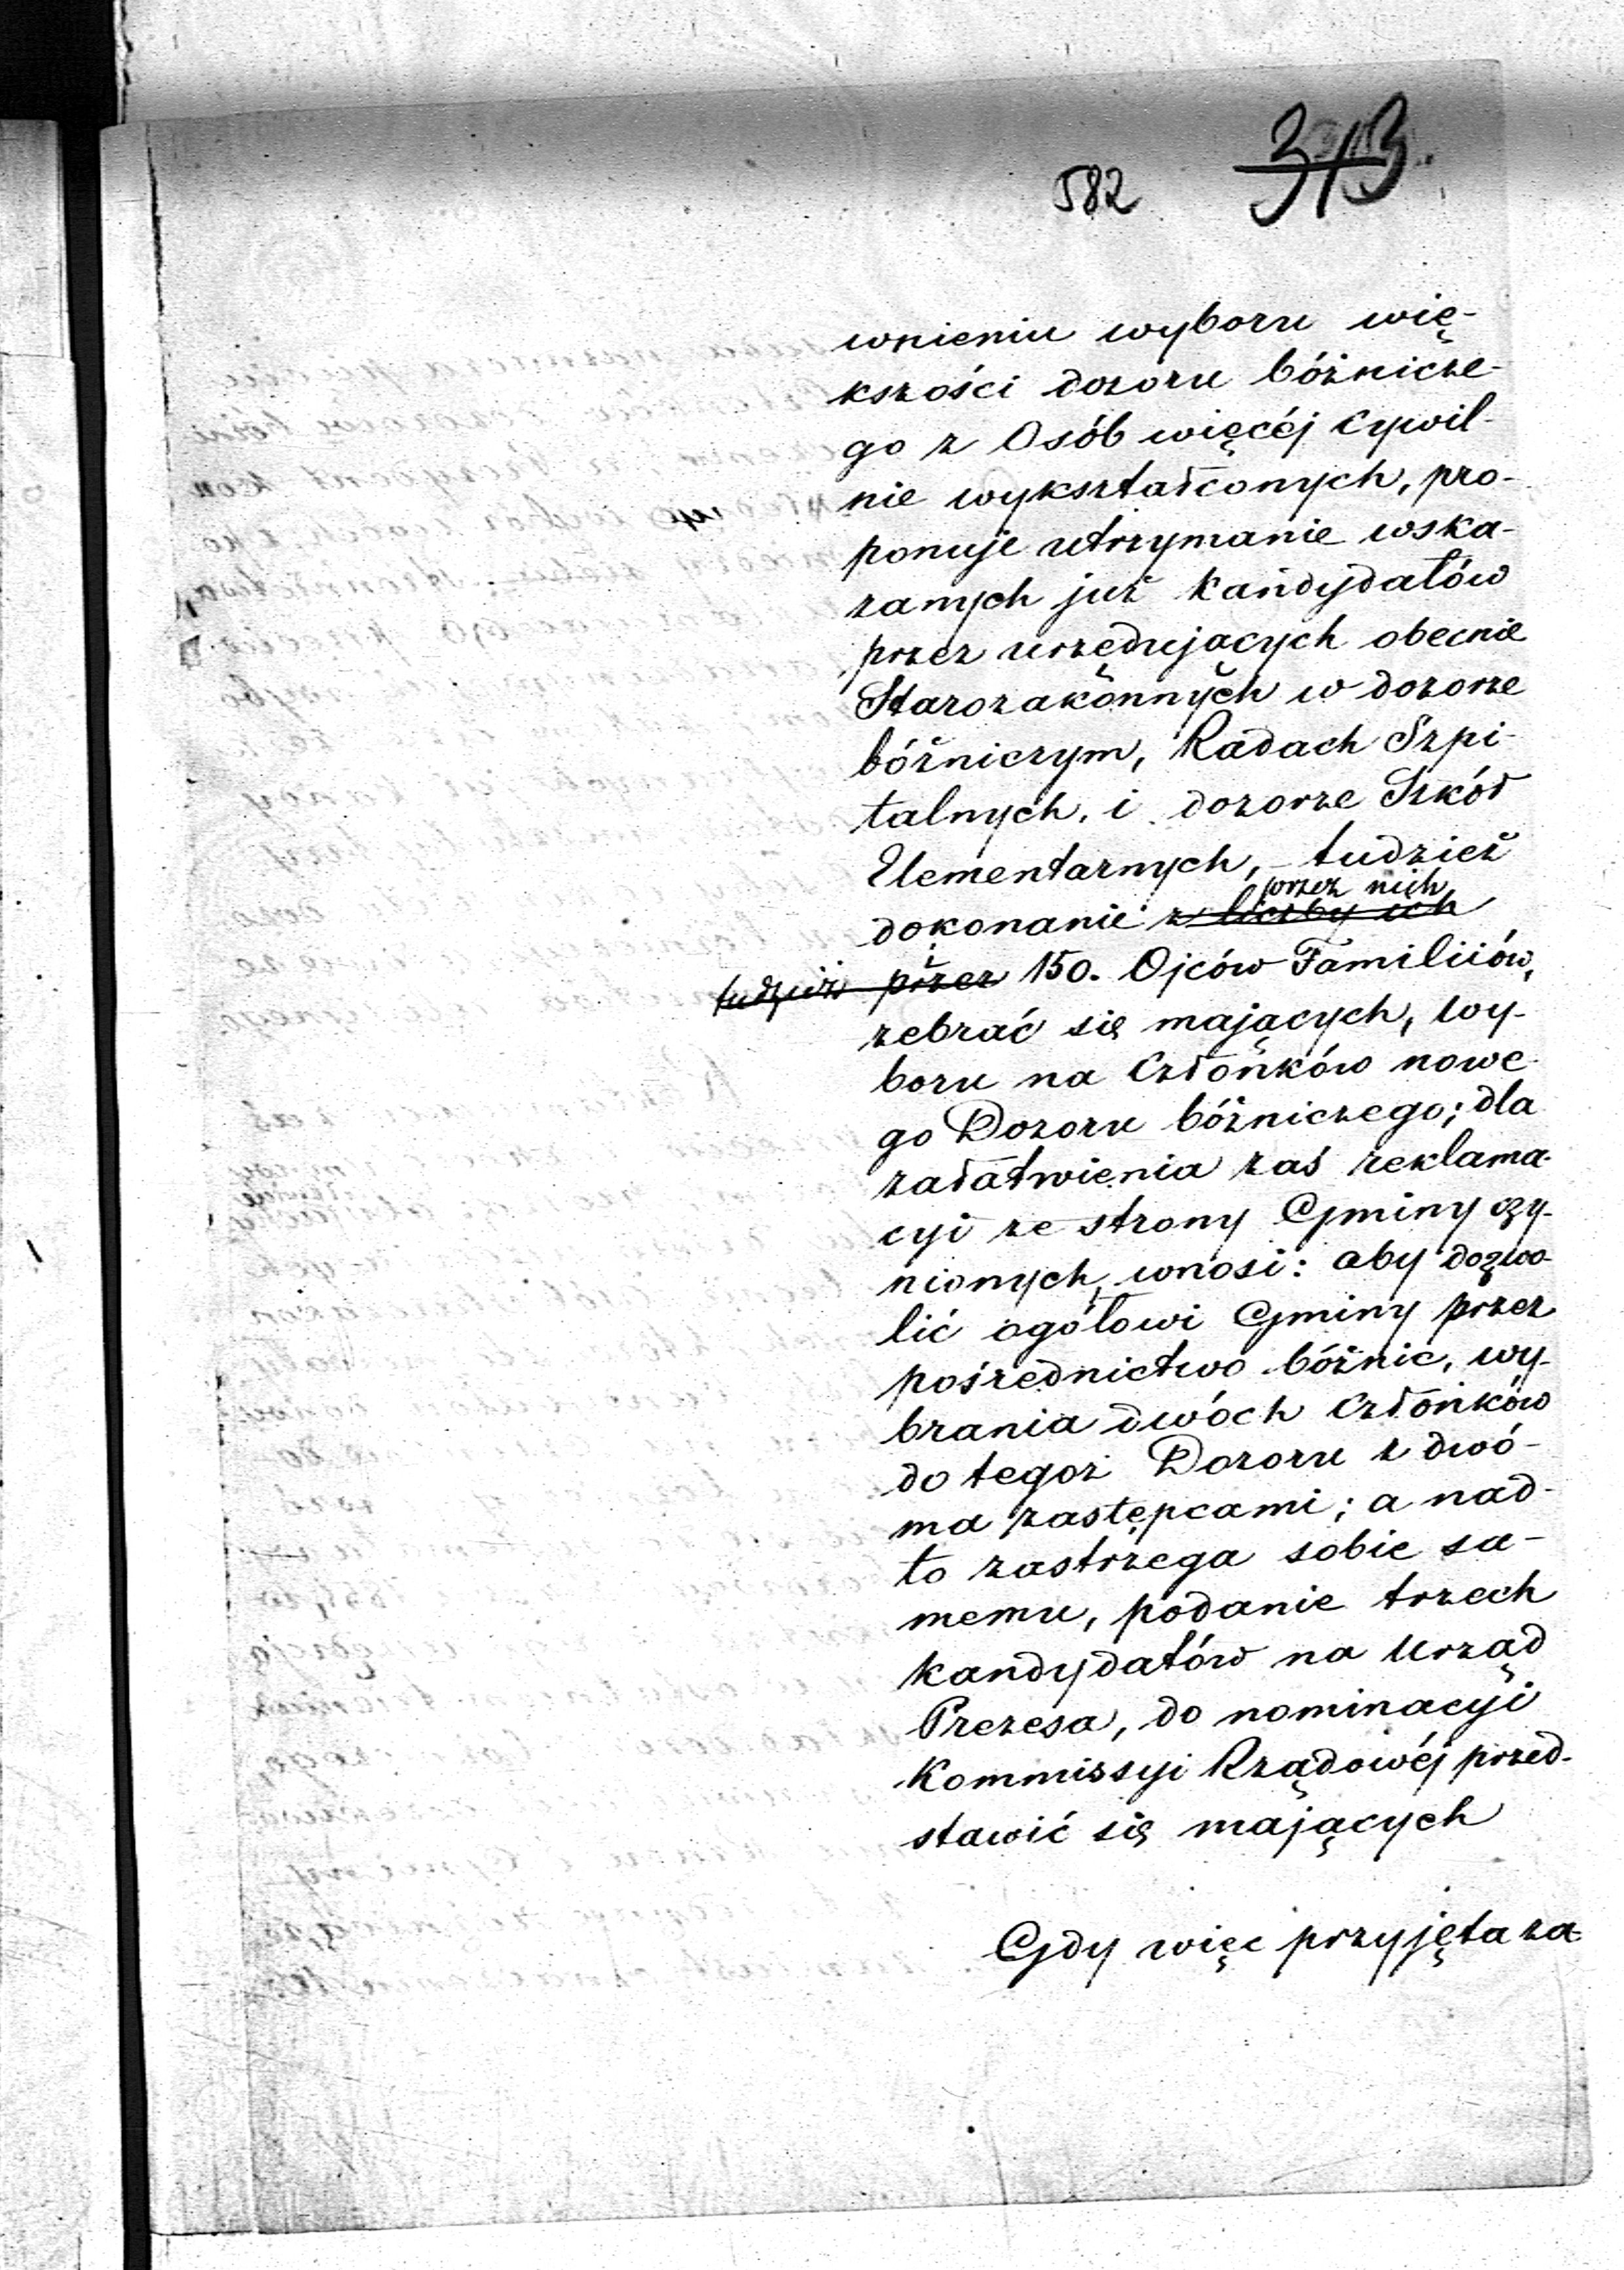 582 313
wnieniu wyboru wię-
kszości dozoru bóżnicze-
go z Osób więcéj Cywil-
nie wykształconych, pro-
ponuje utrzymanie wska-
zanych już kandydatów
przez urzędujących obecnie
Starozakonnych w dozorze
bóżniczym, Radach Szpi-
talnych, i dozorze Szkół
Elementarnych, – tudzież
przez nich
dokonanie z liczby ich
tudzież przez 150. Ojców Familiiów,
zebrać się mających, wy-
boru na Członków nowe-
go Dozoru bóżniczego; dla
załatwienia zaś reklama-
cyi ze strony Gminy czy-
nionych, wnosi: aby dozwo-
lić ogółowi Gminy przez
pośrednictwo bóżnic, wy-
brania dwóch Członków
do tegoż Dozoru z dwó-
ma zastępcami; a nad-
to zastrzega sobie sa-
memu, podanie trzech
kandydatów na Urząd
Prezesa, do nominacyi
Kommissyi Rządowéj przed-
stawić się mających
Gdy więc przyjęta za-